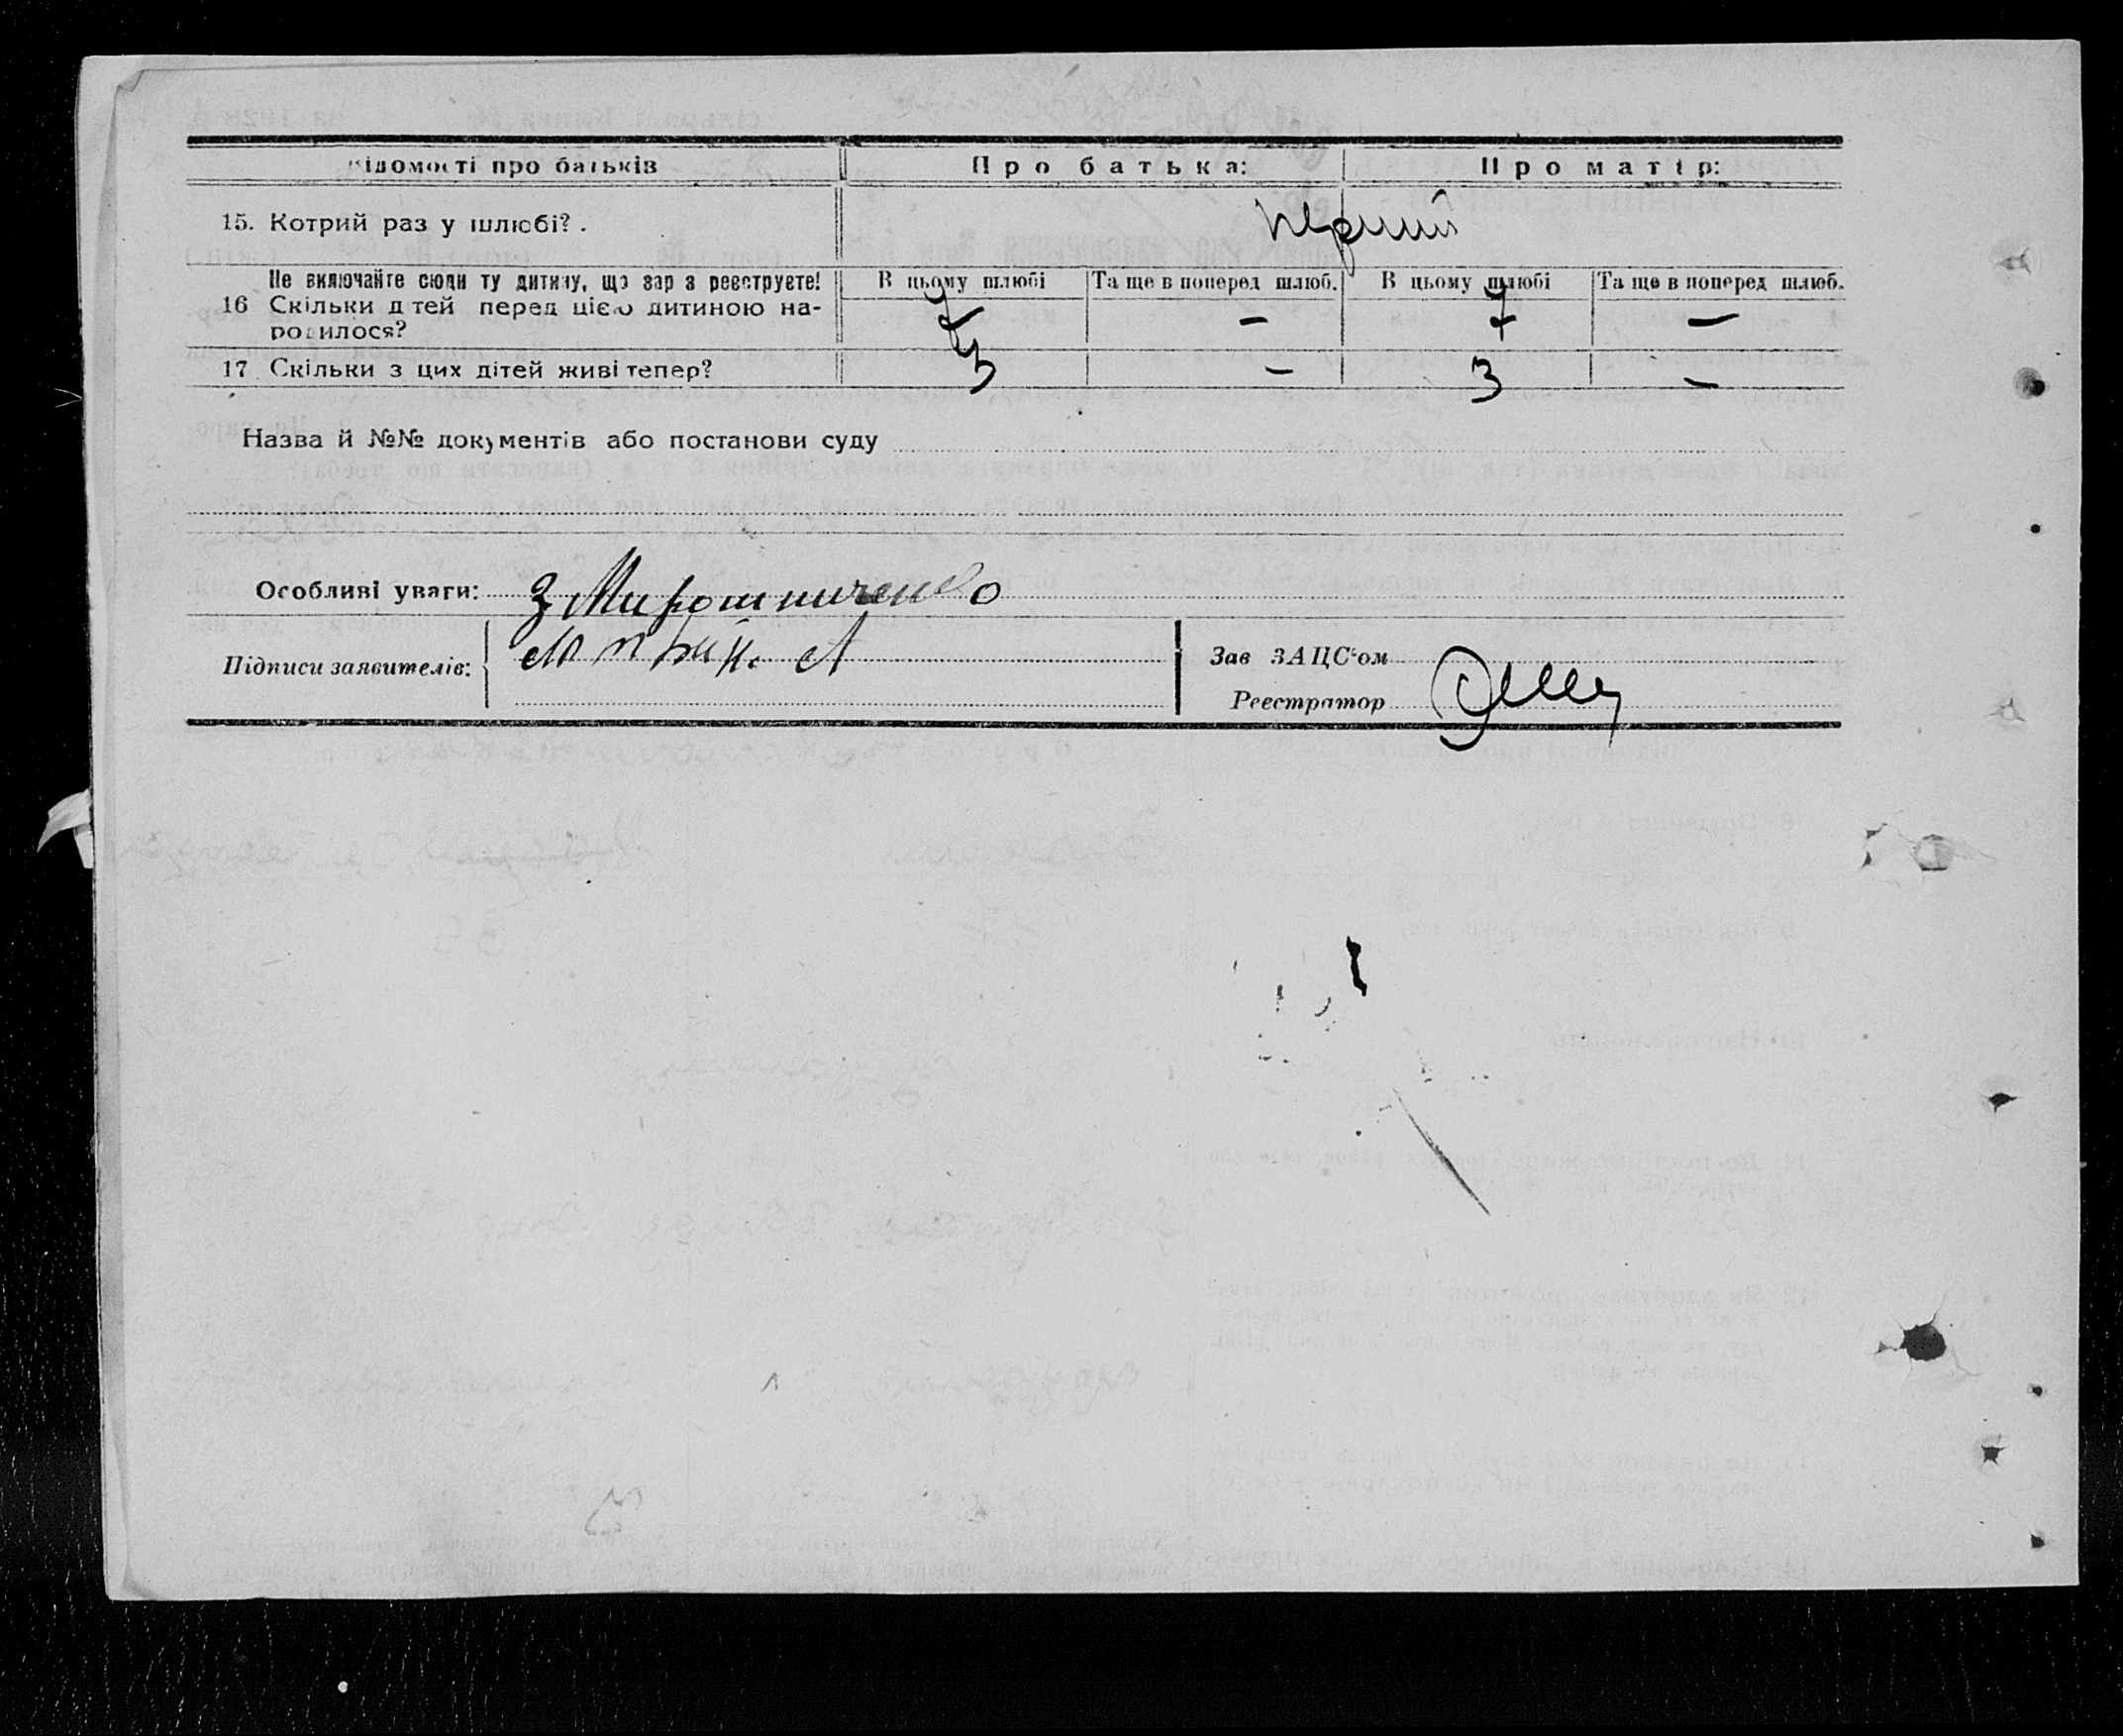 Відомості про батьків Про батька: Про матір:
15. Котрий раз у шлюбі?. перший
Не включайте сюди ту дитину, що зараз реєструєте! В цьому шлюбі Та ще в поперед шлюб. В цьому шлюбі Та ще в поперед шлюб.
16 Скільки дітей перед цією дитиною на-
родилося? 7 – 7 –
17. Скільки з цих дітей живі тепер? 3 – 3 –
Назва й №№ документів або постанови суду
Особливі уваги: З Мирошниченко
Підписи заявителів:
Зав ЗАЦС'ом
Реєстратор